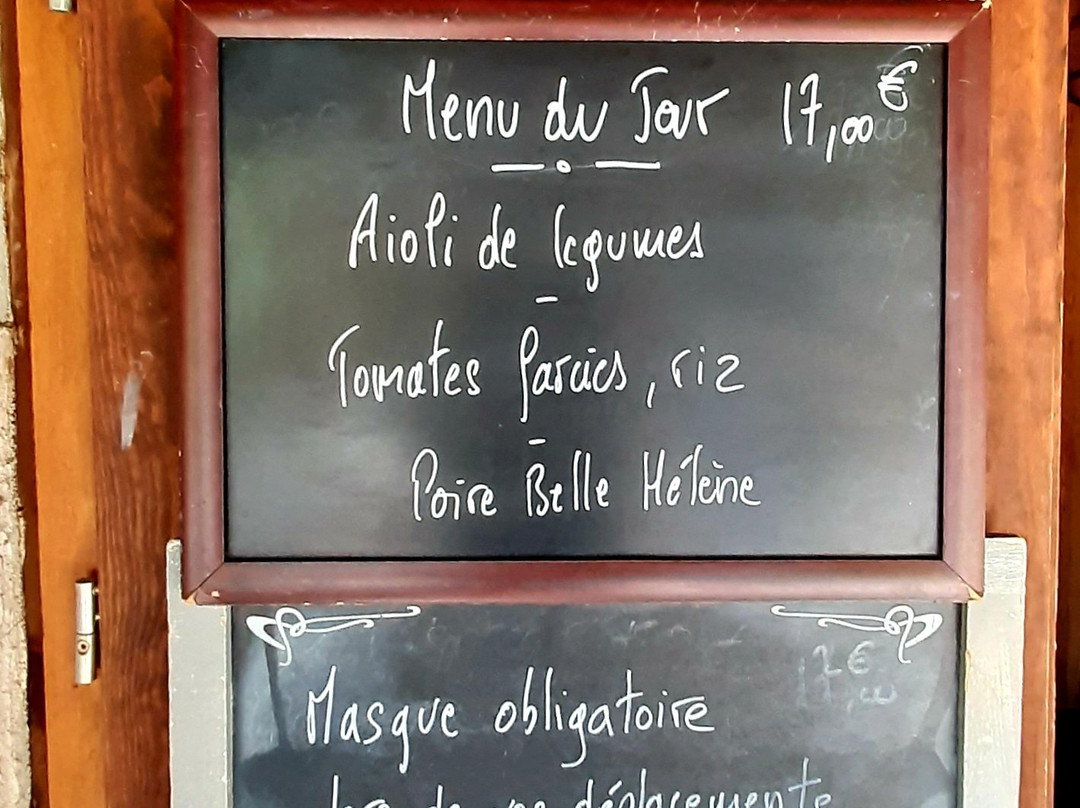 Menu du Jour 17,00 €
Aioli de légumes
Tomates farcies, riz
Poire Belle Hélène
Masque obligatoire
déplacements